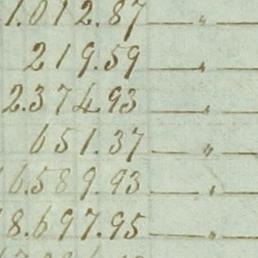 1.012.87 "
219.59 "
2.374.93 "
651.37 "
6.589.93 "
8.697.95 "